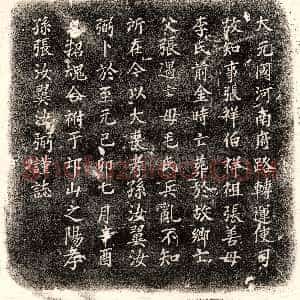 大元國河南府路轉運使司
故知事張祥伯祥祖張善母
李氏前金時亡葬於故鄉亡
父張遇亡母毛氏兵亂不知
所在今以大喪孝孫汝翼汝
弼卜於至元己卯七月辛酉
招魂合祔于邙山之陽孝
孫張汝翼汝弼謹誌